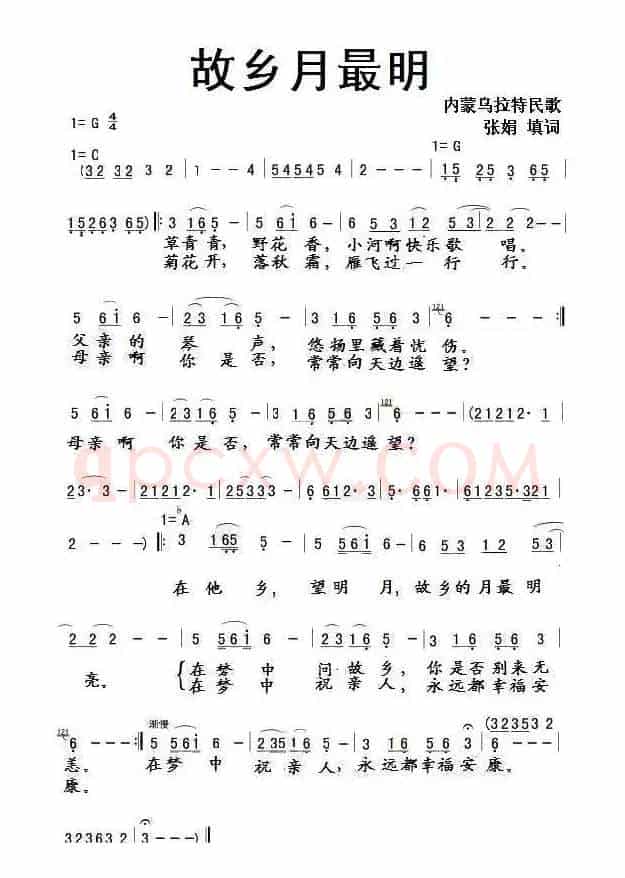 故乡月最明
内蒙乌拉特民歌
1=G 4/4
张娟 填词
1=C
1=G
(32 32 3 2 | 1 - - 4 | 5454545 | 2 - - - | 15 25 3 65 |
15263 65) ‖: 3 165 - | 5 61 6 - | 6 53 12 53 | 2 2 2 - |
草青青, 野花香, 小河啊快乐歌 唱。
菊花开, 落秋霜, 雁飞过一行 行。
5 61 6 - | 23 16 5 - | 3 16 56 3 | 6 - - - :‖
父亲的 琴 声, 悠扬里藏着忧伤。
母亲啊 你是否, 常常向天边遥望?
5 61 6 - | 2316 5 - | 3 16 56 3 | 6 - - - | (21212· 1 |
母亲啊 你是否, 常常向天边遥望?
qpcxw.COM
23· 3 - | 21212· 1 | 25333 - | 6 612 3532 | 5· 661· | 61235·321 |
1=♭A
2 - - -) ‖: 3 165 5 - | 5 561 6 - | 6 53 12 53 |
在他乡, 望明月, 故乡的月最明
2 2 2 - | 5 561 6 - | 235 16 5 - | 3 16 56 5 |
亮。 在梦中 问故乡, 你是否别来无
在梦中 祝亲人, 永远都幸福安
渐慢
(32353 2
6 - - - :‖ 5 561 6 - | 235 16 5 - | 3 16 56 3 | 6 - - - |
恙。 在梦中 祝亲人, 永远都幸福安康。
康。
32363 2 | 3 - - -) ‖